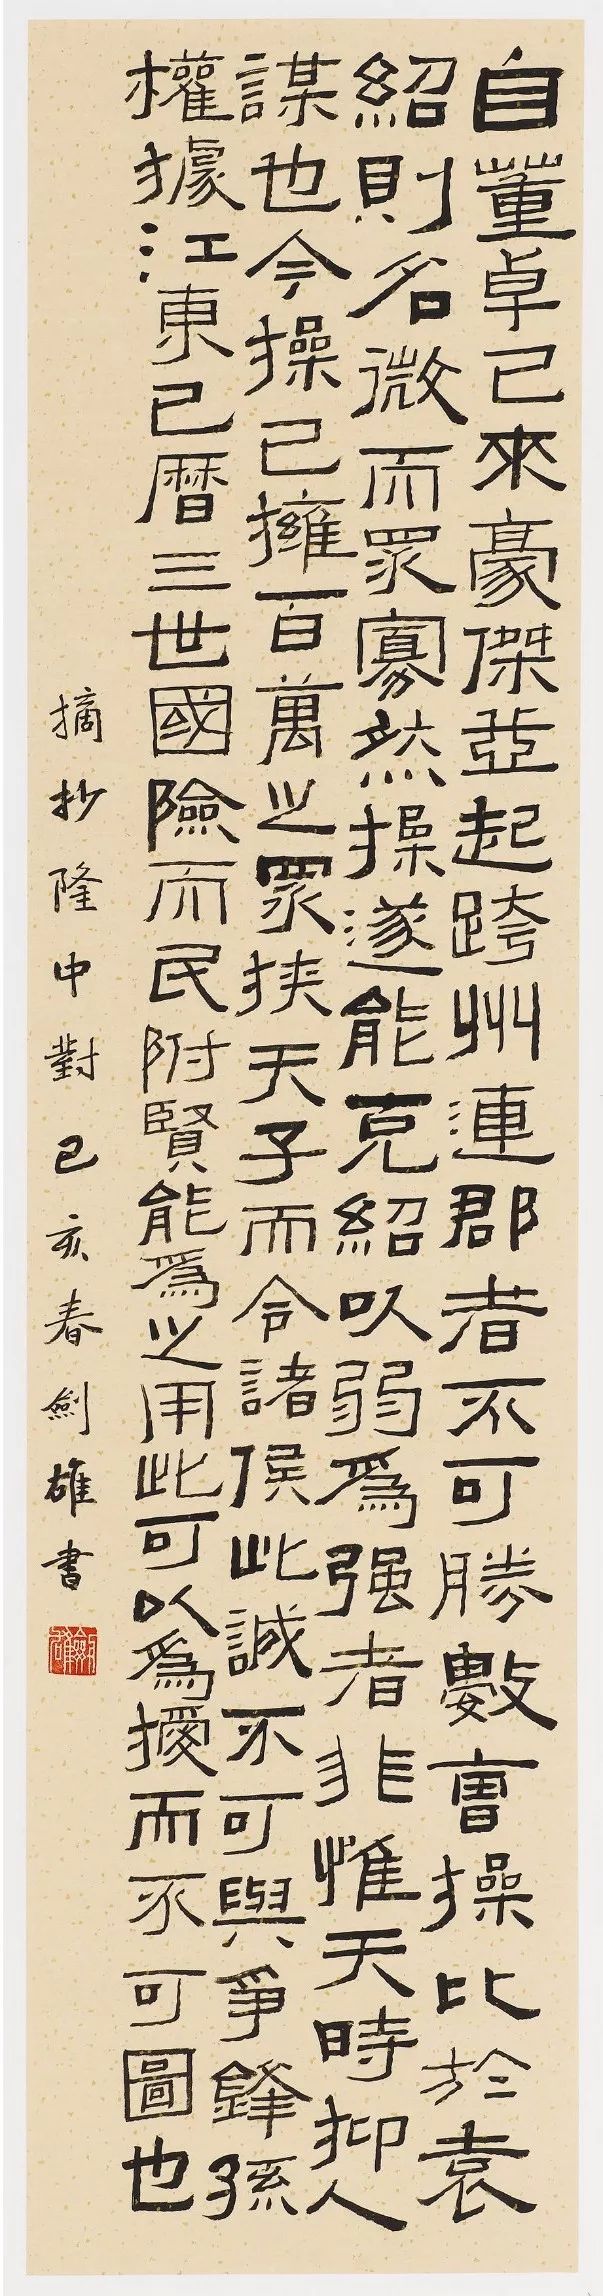 自董卓已來豪傑並起跨州連郡者不可勝數曹操比於袁
紹則名微而眾寡然操遂能克紹以弱為强者非惟天時抑人
謀也今操已擁百萬之眾挾天子而令諸侯此誠不可與爭鋒孫
權據江東已曆三世國險而民附賢能為之用此可以為援而不可圖也
摘抄隆中對己亥春劍雄書
劍雄